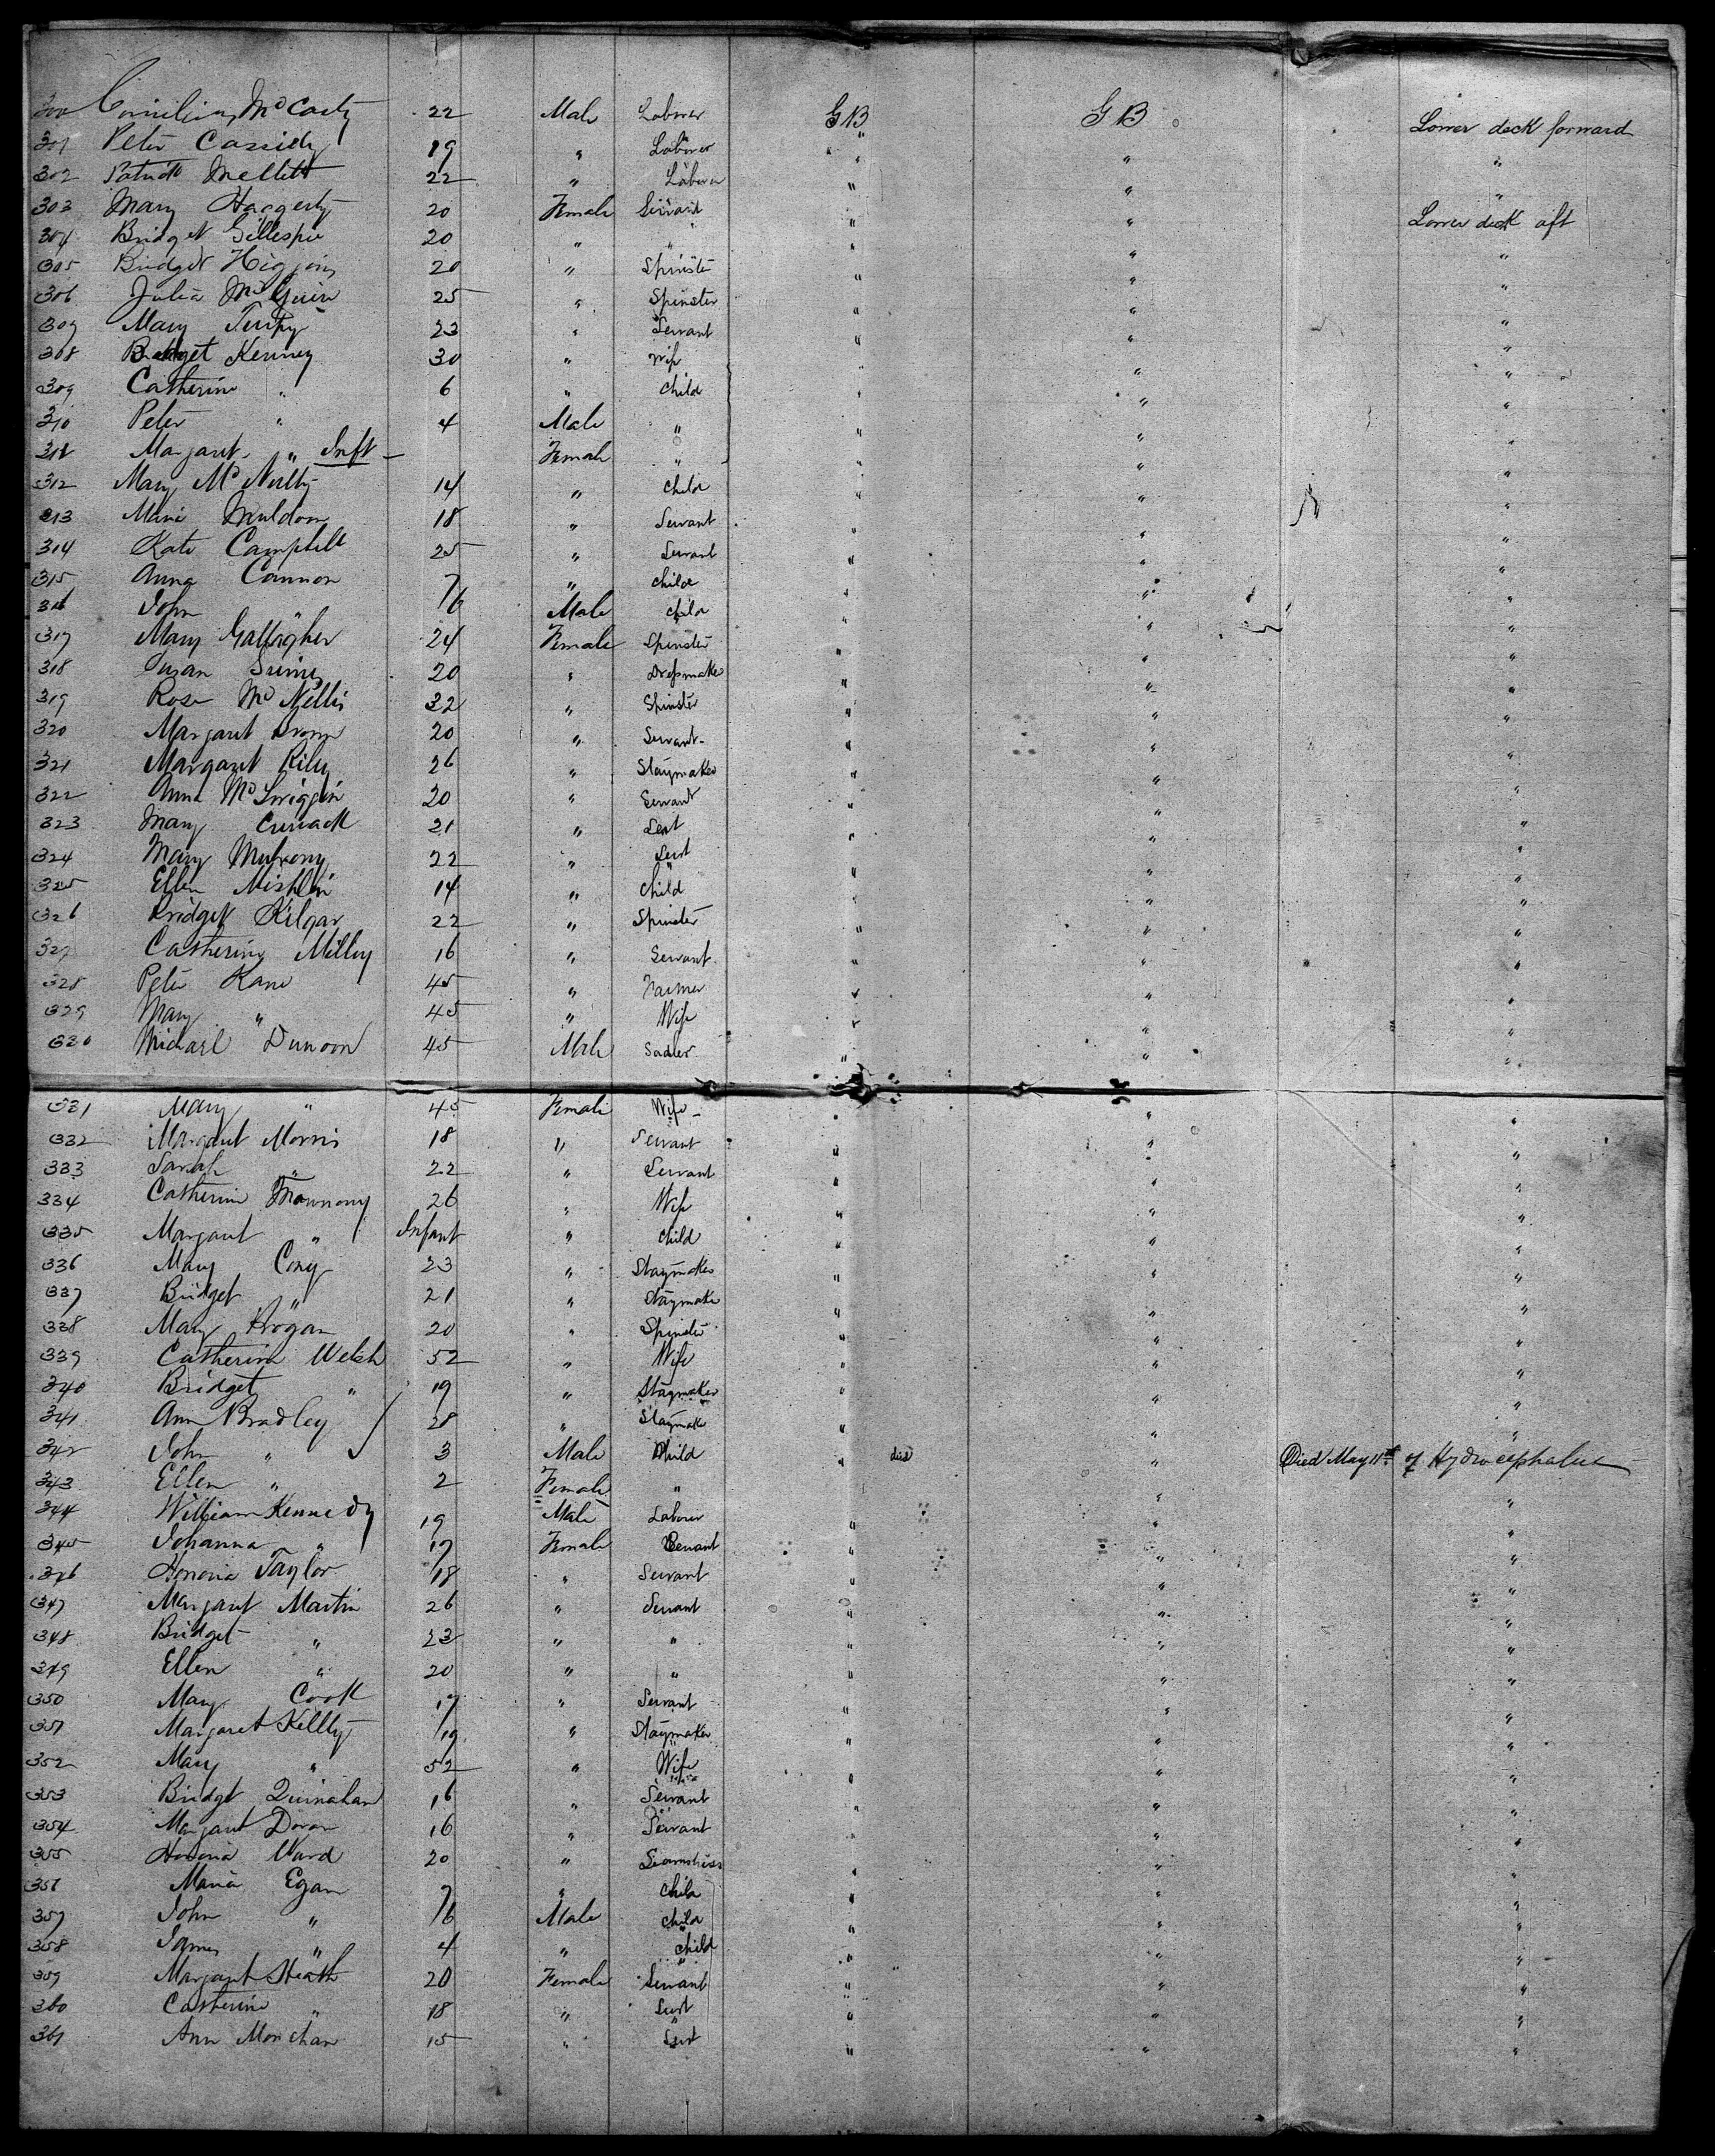 300 Cornelius McCarty 22 Male Laborer GB GB Lower deck forward
301 Peter Cassidy 19 " Laborer " " "
302 Patrick Mellett 22 " Laborer " " "
303 Mary Haggerty 20 Female Servant " " Lower deck aft
304 Bridget Gillespie 20 " " " " "
305 Bridget Higgins 20 " Spinster " " "
306 Julia McGuire 25 " Spinster " " "
307 Mary 23 " Servant " " "
308 Bridget Kenney 30 " Wife " " "
309 Catherine " 6 " Child " " "
310 Peter " 4 Male " " " "
311 Margaret " Inft Female " " " "
312 Mary McNulty 14 " Child " " "
313 Maria Muldoon 18 " Servant " " "
314 Kate Campbell 25 " Servant " " "
315 Anna Cannon 7 " Child " " "
316 John " 6 Male Child " " "
317 Mary Gallagher 24 Female Spinster " " "
318 Susan 20 " Dressmaker " " "
319 Rose McNellis 32 " Spinster " " "
320 Margaret 20 " Servant " " "
321 Margaret Rily 26 " Staymaker " " "
322 Anna 20 " Servant " " "
323 Mary Cusack 21 " Servt " " "
324 Mary Mulrony 22 " Servt " " "
325 Ellen 14 " Child " " "
326 Bridget Kilgar 22 " Spinster " " "
327 Catherine Milley 16 " Servant " " "
328 Peter Kane 45 " Farmer " " "
329 Mary " 45 " Wife " " "
330 Michael Dunoon 45 Male Sadler " " "
331 Mary " 45 Female Wife " " "
332 Margaret Morris 18 " Servant " " "
333 Sarah " 22 " Servant " " "
334 Catherine 26 " Wife " " "
335 Margaret " Infant " Child " " "
336 Mary Cony 23 " Staymaker " " "
337 Bridget " 21 " Staymaker " " "
338 Mary Brogan 20 " Spinster " " "
339 Catherine Welsh 52 " Wife " " "
340 Bridget " 19 " Staymaker " " "
341 Ann Bradley 28 " Staymaker " " "
342 John " 3 Male Child " died " Died May 11th of Hydrocephalus
343 Ellen " 2 Female " " "
344 William Kennedy 19 Male Laborer " " "
345 Johanna " 17 Female Servant " " "
346 Honoria Taylor 18 " Servant " " "
347 Margaret Martin 26 " Servant " " "
348 Bridget " 23 " " " " "
349 Ellen " 20 " " " " "
350 Mary Cook 17 " Servant " " "
351 Margaret Kelly 19 " Staymaker " " "
352 Mary " 52 " Wife " " "
353 Bridget Quinahan 16 " Servant " " "
354 Margaret Doran 16 " Servant " " "
355 Honoria Ward 20 " Seamstress " " "
356 Maria Egan 7 " Child " " "
357 John " 6 Male Child " " "
358 James " 4 " Child " " "
359 Margaret Heath 20 Female Servant " " "
360 Catherine " 18 " Servt " " "
361 Ann Monchan 15 " Servt " " "